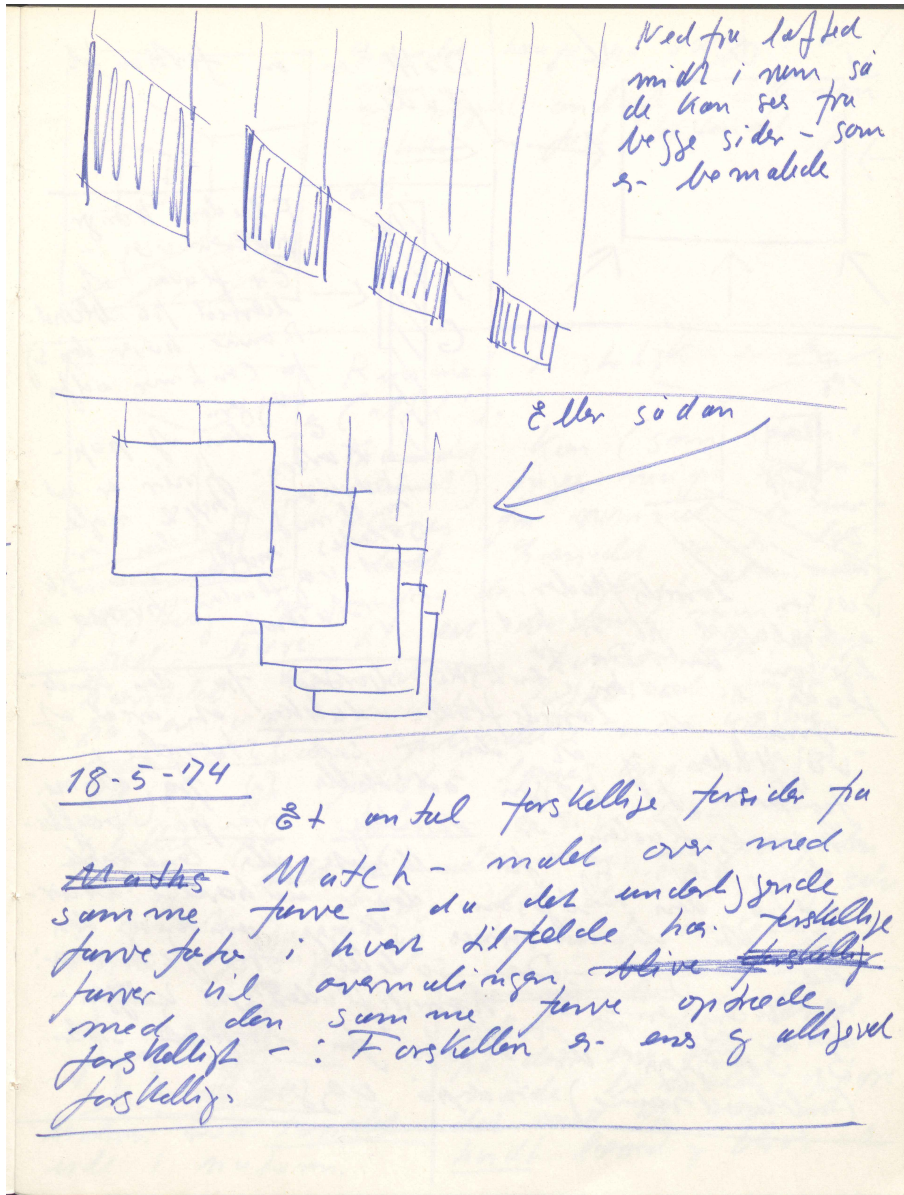 Ned fra loftet
midt i rum, så
de kan ses fra
begge sider - som
er bemalede
Eller sådan
18-5-74
Et antal forskellige forsider fra
Maths Match - malet over med
samme farve - da det underliggende
farvefoto i hvert tilfælde har forskellige
farver vil overmalingen blive forskellig
med den samme farve optræde
forskelligt - : Forskellen er ens og alligevel
forskellig.